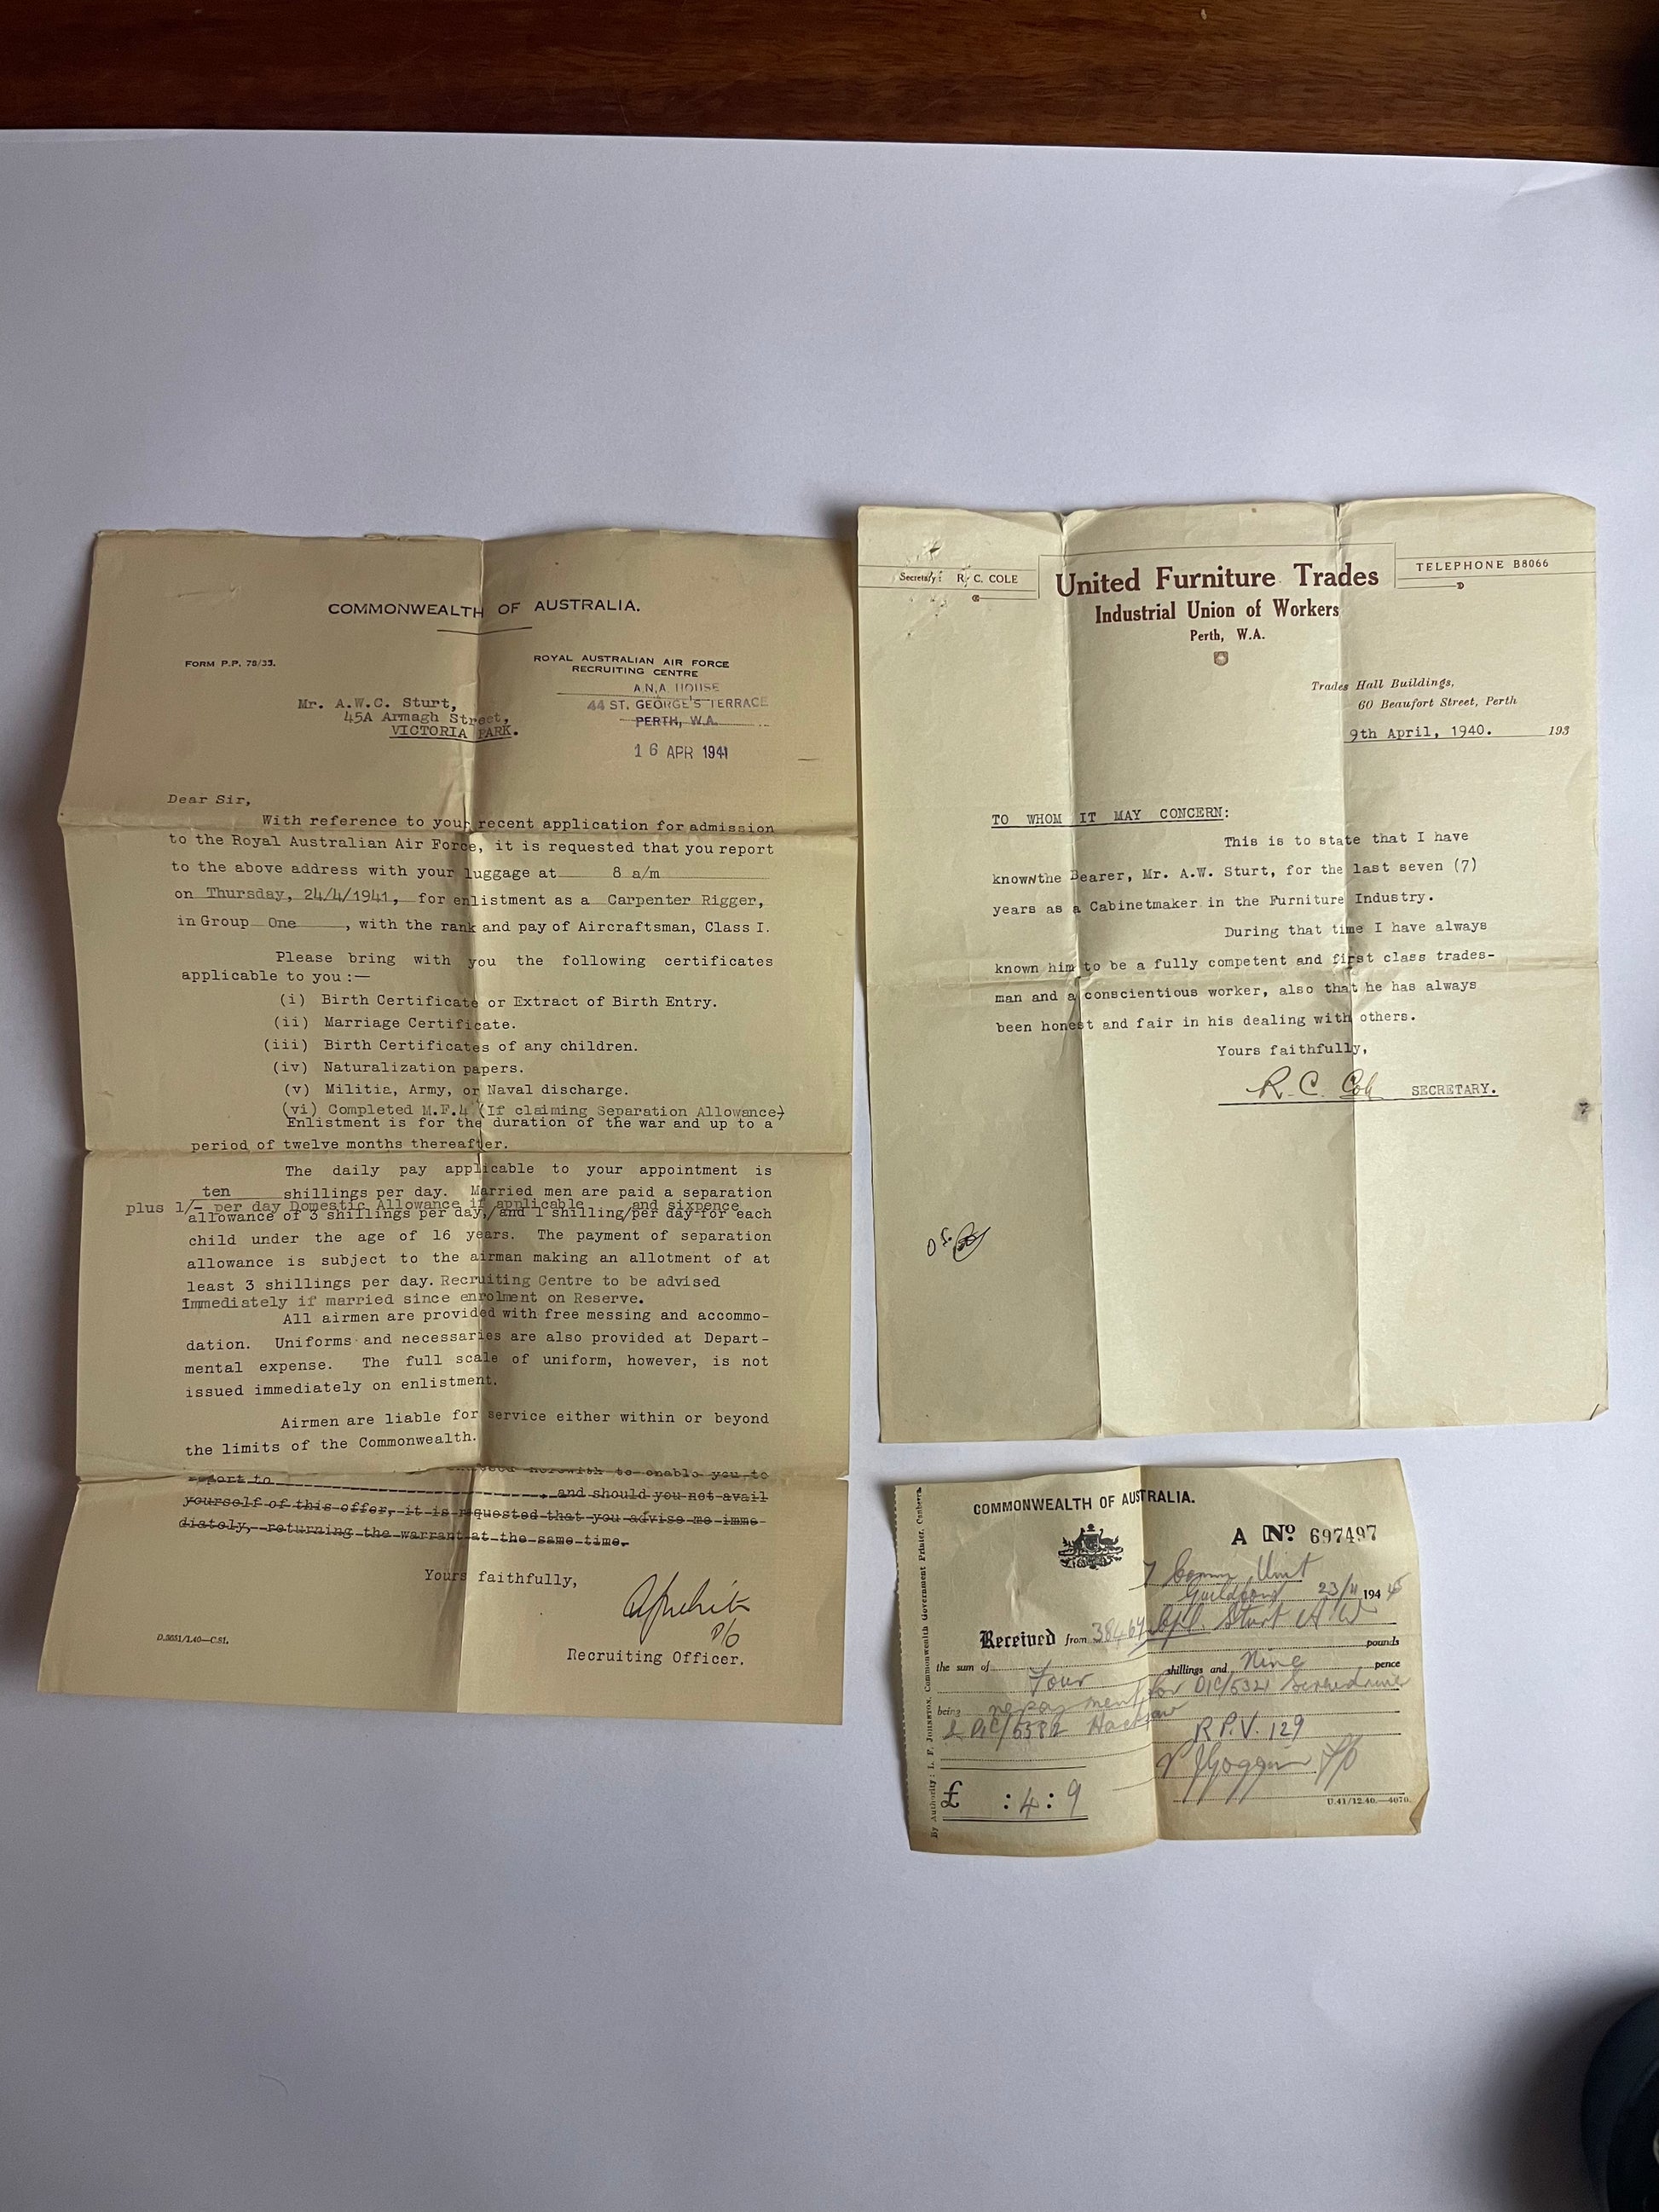 COMMONWEALTH OF AUSTRALIA.
FORM P.P. 78/33.
ROYAL AUSTRALIAN AIR FORCE
RECRUITING CENTRE
A.N.A. HOUSE
44 ST. GEORGE'S TERRACE
PERTH, W.A.
16 APR 1941
Mr. A.W.C. Sturt,
45A Armagh Street,
VICTORIA PARK.
Dear Sir,
With reference to your recent application for admission
to the Royal Australian Air Force, it is requested that you report
to the above address with your luggage at 8 a/m
on Thursday, 24/4/1941, for enlistment as a Carpenter Rigger,
in Group One, with the rank and pay of Aircraftsman, Class I.
Please bring with you the following certificates
applicable to you:—
(i) Birth Certificate or Extract of Birth Entry.
(ii) Marriage Certificate.
(iii) Birth Certificates of any children.
(iv) Naturalization papers.
(v) Militia, Army, or Naval discharge.
(vi) Completed M.F.4 (If claiming Separation Allowance)
Enlistment is for the duration of the war and up to a
period of twelve months thereafter.
The daily pay applicable to your appointment is
ten shillings per day. Married men are paid a separation
plus 1/- per day Domestic Allowance if applicable and sixpence
allowance of 3 shillings per day,/and 1 shilling/per day for each
child under the age of 16 years. The payment of separation
allowance is subject to the airman making an allotment of at
least 3 shillings per day. Recruiting Centre to be advised
Immediately if married since enrolment on Reserve.
All airmen are provided with free messing and accommo-
dation. Uniforms and necessaries are also provided at Depart-
mental expense. The full scale of uniform, however, is not
issued immediately on enlistment.
Airmen are liable for service either within or beyond
the limits of the Commonwealth.
herewith to enable you to
report to , and should you not avail
yourself of this offer, it is requested that you advise me imme-
diately, returning the warrant at the same time.
Yours faithfully,
Recruiting Officer.
D.3651/1.40—C.81.
Secretary: R. C. COLE
United Furniture Trades
TELEPHONE B8066
Industrial Union of Workers
Perth, W.A.
Trades Hall Buildings,
60 Beaufort Street, Perth
9th April, 1940. 193
TO WHOM IT MAY CONCERN:
This is to state that I have
known the Bearer, Mr. A.W. Sturt, for the last seven (7)
years as a Cabinetmaker in the Furniture Industry.
During that time I have always
known him to be a fully competent and first class trades-
man and a conscientious worker, also that he has always
been honest and fair in his dealing with others.
Yours faithfully,
R. C. Cole SECRETARY.
COMMONWEALTH OF AUSTRALIA.
A No. 697497
7 Comm Unit
Guildford 23/11 1945
Received from 38464 Cpl. Sturt A W
pounds
the sum of Four shillings and Nine pence
being repayment for D1C/5321 Screwdriver
& D1C/5382 Hacksaw
R.P.V. 129
£ :4:9
U.41/12.40.—4070.
By Authority: L. F. JOHNSTON, Commonwealth Government Printer, Canberra